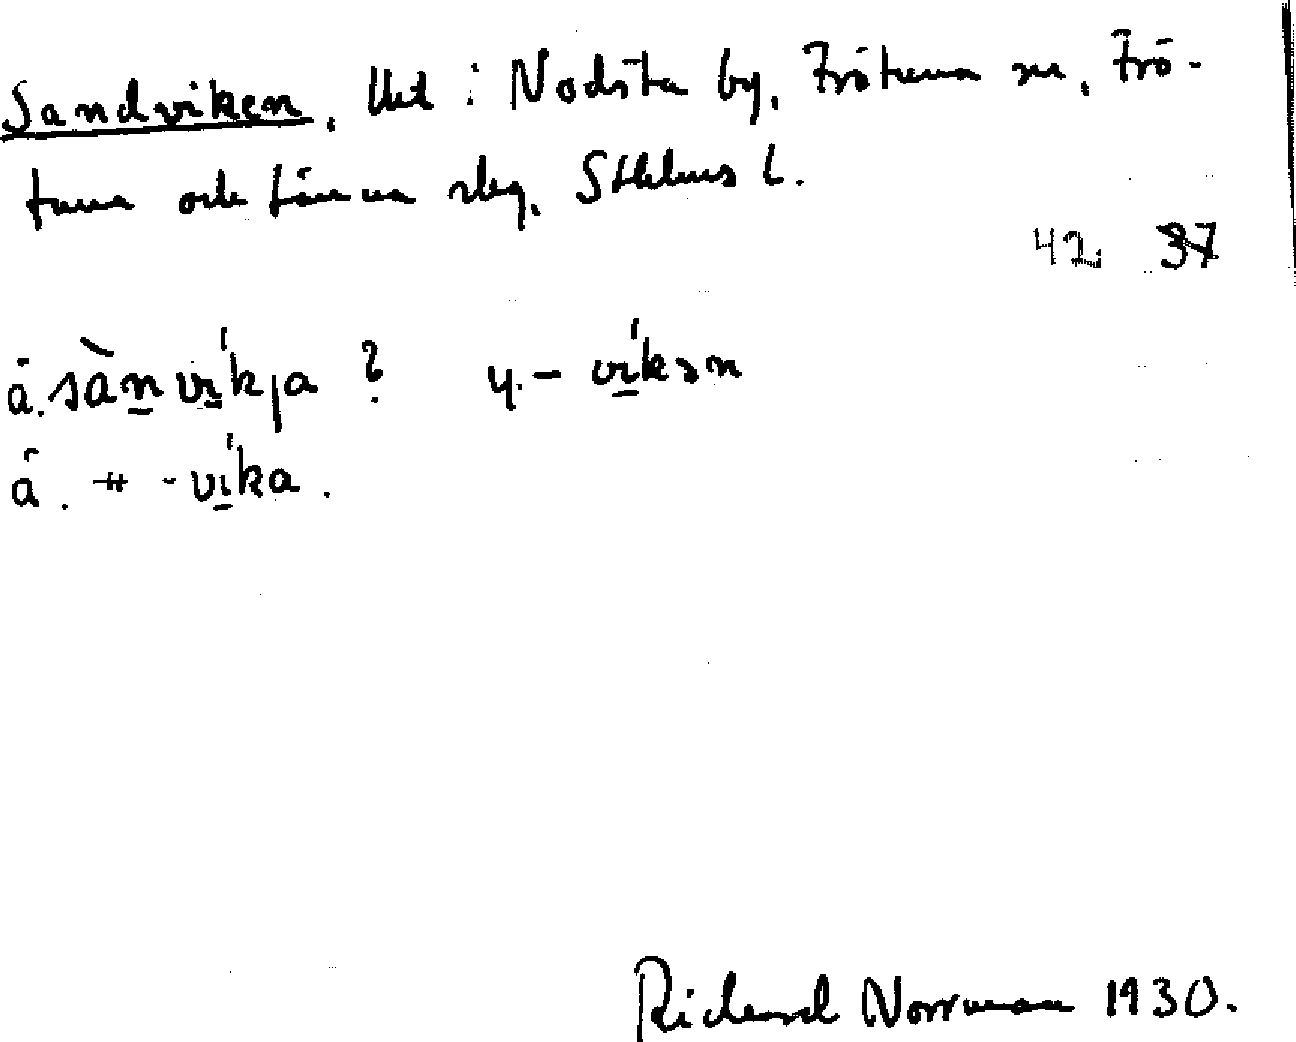 Sandviken, lht i Nodsta by, Frötuna sn, Frö-
tuna och Länna slg, Sthlms l.
42 37
å. sànvíkja ? y. - víkən
å. + -víka.
Richard Norrman 1930.